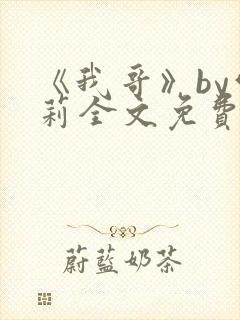 《我哥》by
莉全文免費
蔚藍奶茶